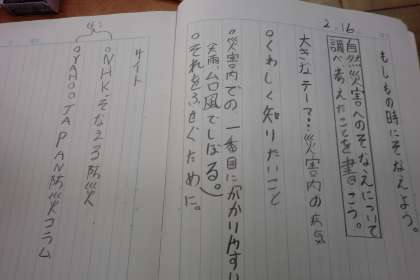 もしもの時にそなえよう。
2.16
自然災害へのそなえについて
調べ考えたことを書こう。
大きなテーマ:災害内の病気
○くわしく知りたいこと
○災害内での一番目にかかりやすい
台風でしぼる。)
○それをふせぐために。
サイト
○NHKそなえる防災
○YAHOO JAPAN防災コラム